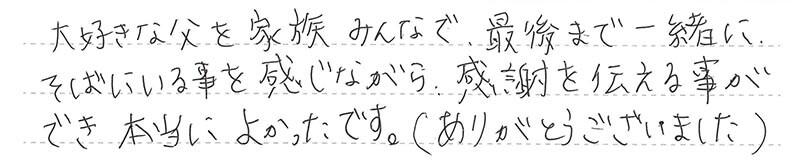 大好きな父を家族みんなで、最後まで一緒に、
そばにいる事を感じながら、感謝を伝える事が
でき本当によかったです。(ありがとうございました)